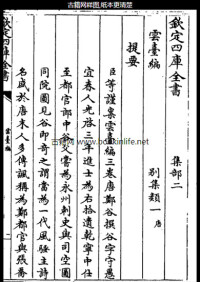 古籍网截图,纸本更清楚
欽定四庫全書
集部二
雲臺編
別集類一 唐
提要
臣等謹案雲臺編三卷唐鄭谷撰谷字守愚
宜春人光啟三年進士為右拾遺乾寧中仕
至都官郎中谷父嘗為永州刺史與司空圖
同院圖見谷即奇之謂當為一代風騷主詩
名盛於唐末人多傳諷稱為鄭都官與張喬
欽定四庫全書
雲臺編